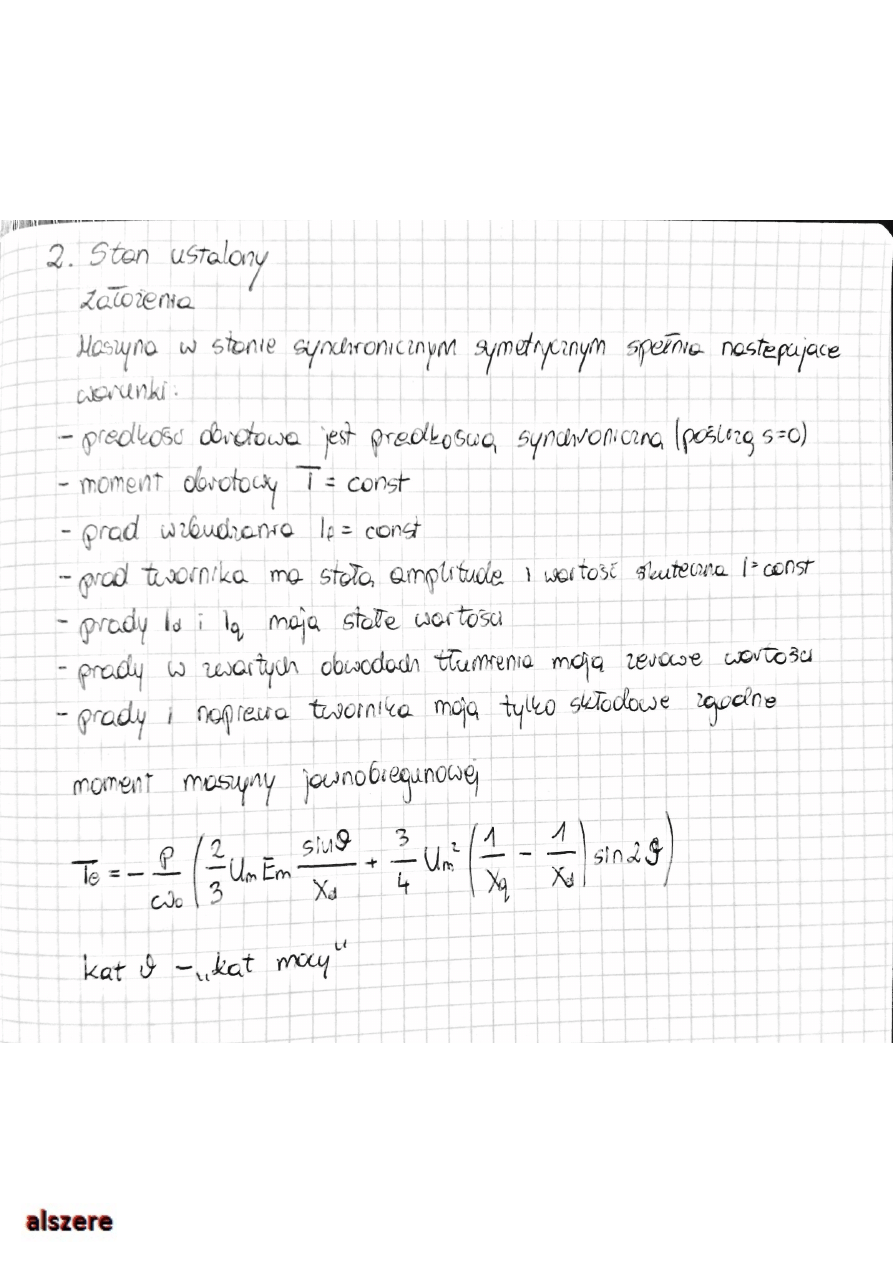 2. Stan ustalony
Założenia
Maszyna w stanie synchronicznym symetrycznym spełnia nastepujace
warunki:
- predkość obrotowa jest predkoscią synchroniczną (poślizg s=0)
- moment obrotowy T = const
- prad wzbudzania If = const
- prad twornika ma stałą amplitude i wartość skuteczna I = const
- prady Id i Iq maja stałe wartości
- prady w zwartych obwodach tłumienia mają zerowe wartości
- prady i napiecia twornika mają tylko składowe zgodne
moment maszyny jawnobiegunowej
Te = - p/ω₀ (2/3 Um Em sinϑ/Xd + 3/4 Um² (1/Xq - 1/Xd) sin2ϑ)
kat ϑ - „kat mocy"
alszere